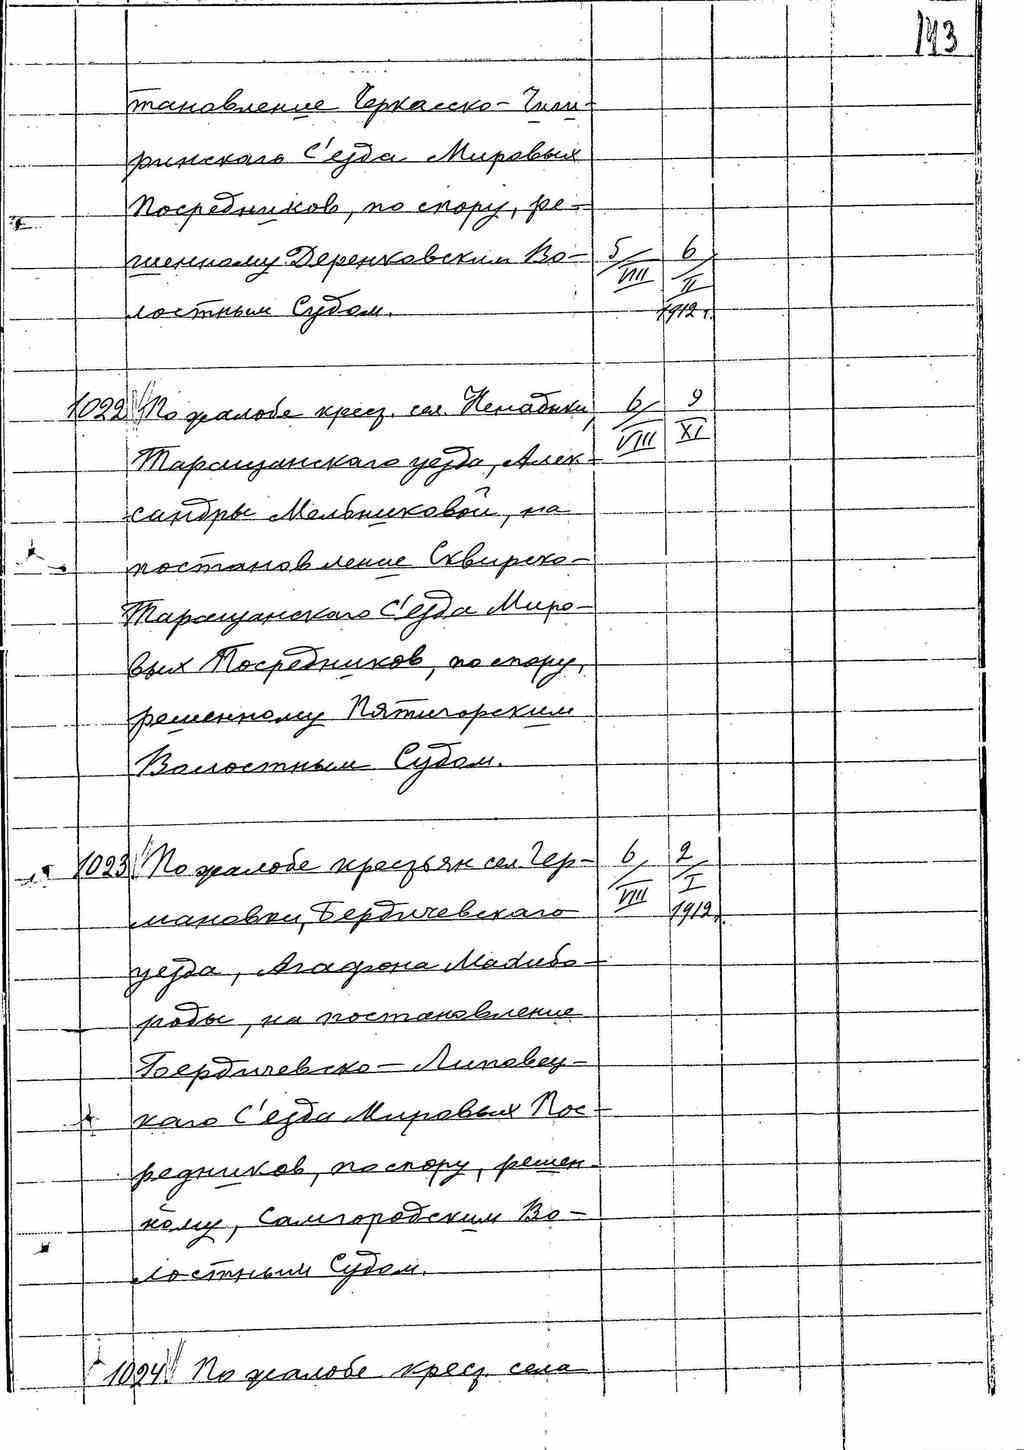 143
тановление Черкасско- Чиги-
ринскаго С'езда Мировых
Посредников, по спору, ре-
шенному Деренковским Во- 5/VIII 6/II
лостным Судом. 1912 г.
1022 По жалобе крест. сел. Ненадыхи, 6/VIII 9/XI
Таращанскаго уезда, Алек-
сандры Мельниковой, на
постановление Сквирско-
Таращанскаго С'езда Миро-
вых Посредников, по спору,
решенному Пятигорским
Волостным Судом.
1023 По жалобе крестьян сел. Гер- 6/VIII 2/I
мановки, Бердичевскаго 1912 г.
уезда, Агафона Махибо-
роды, на постановление
Бердичевско- Липовец-
каго С'езда Мировых Пос-
редников, по спору, решен-
ному, Самгородским Во-
лостным Судом.
1024 По жалобе крест. села